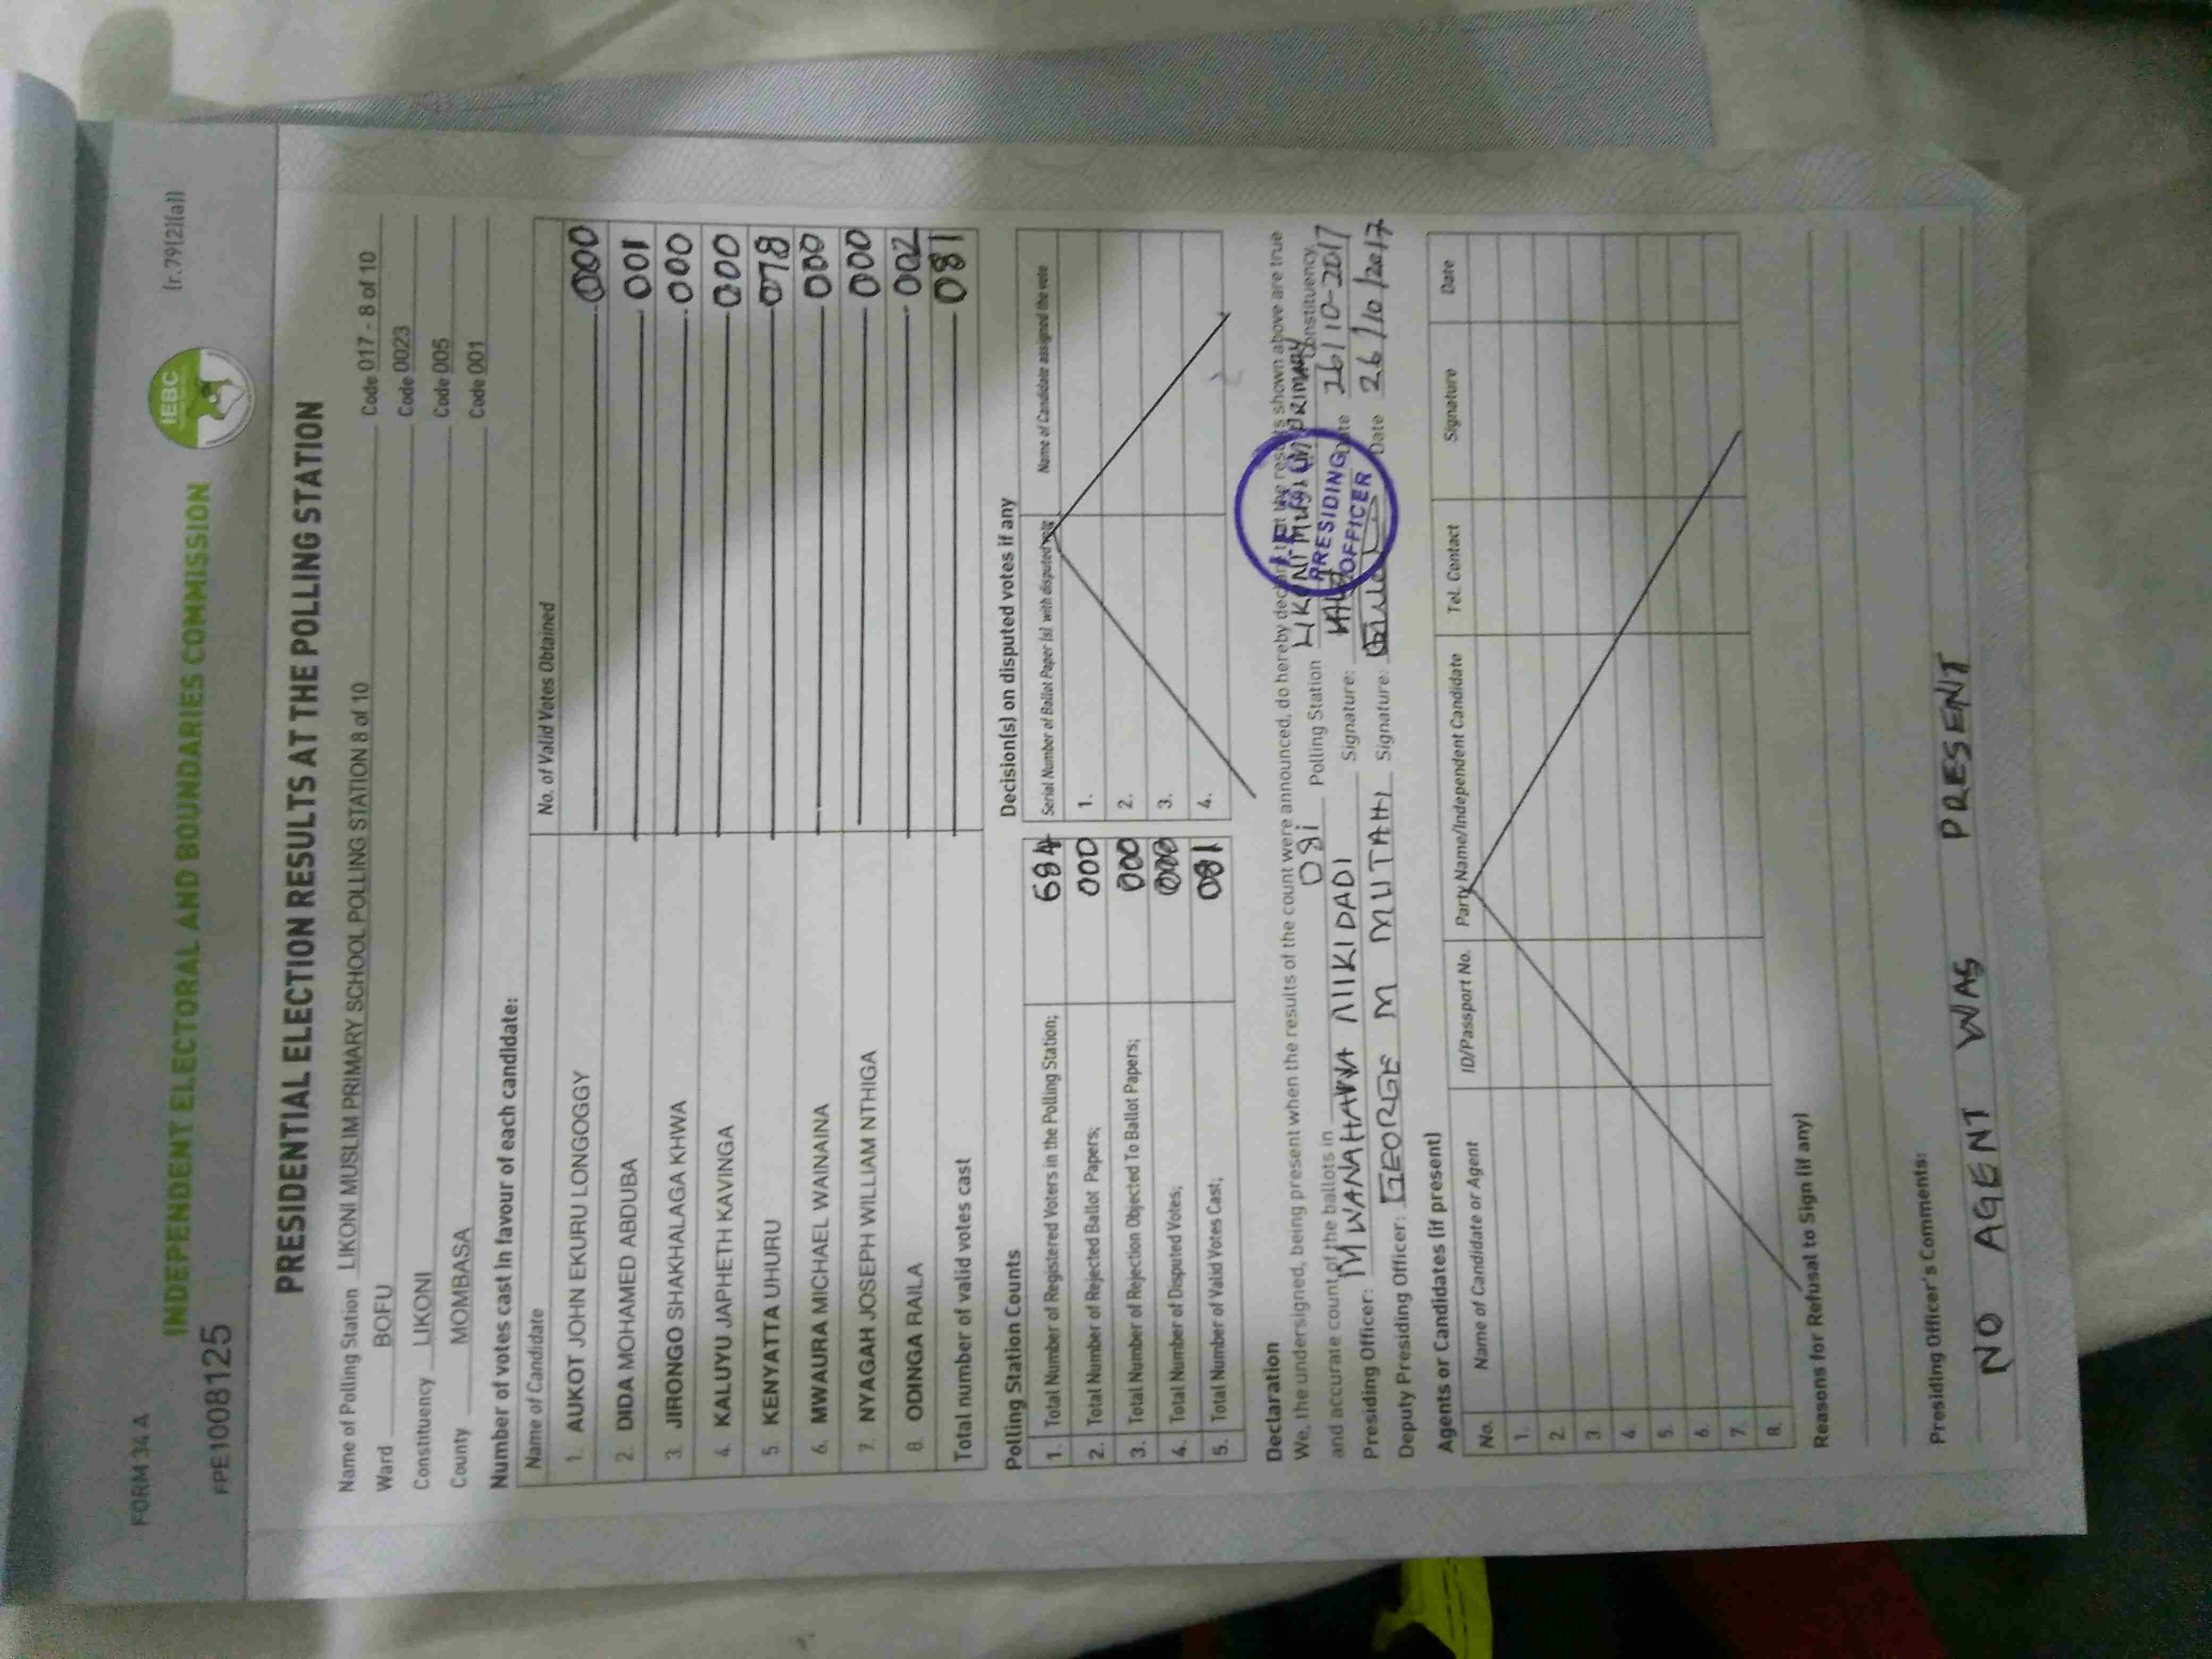 FORM 34 A
(r.79(2)(a))
IEBC
INDEPENDENT ELECTORAL AND BOUNDARIES COMMISSION
FPE1008125
PRESIDENTIAL ELECTION RESULTS AT THE POLLING STATION
Name of Polling Station LIKONI MUSLIM PRIMARY SCHOOL POLLING STATION 8 of 10 Code 017 - 8 of 10
Ward BOFU Code 0023
Constituency LIKONI Code 005
County MOMBASA Code 001
Number of votes cast in favour of each candidate:
Name of Candidate No. of Valid Votes Obtained
1. AUKOT JOHN EKURU LONGOGGY 000
2. DIDA MOHAMED ABDUBA 001
3. JIRONGO SHAKHALAGA KHWA 000
4. KALUYU JAPHETH KAVINGA 000
5 KENYATTA UHURU 078
6. MWAURA MICHAEL WAINAINA 000
7. NYAGAH JOSEPH WILLIAM NTHIGA 000
8. ODINGA RAILA 002
Total number of valid votes cast 081
Polling Station Counts
1. Total Number of Registered Voters in the Polling Station; 684
2. Total Number of Rejected Ballot Papers; 000
3. Total Number of Rejection Objected To Ballot Papers; 000
4. Total Number of Disputed Votes; 000
5. Total Number of Valid Votes Cast; 081
Decision(s) on disputed votes if any
Serial Number of Ballot Paper (s) with disputed Name of Candidate assigned the vote
1.
2.
3.
4.
Declaration
We, the undersigned, being present when the results of the count were announced, do hereby declare that the results shown above are true
and accurate count of the ballots in 081 Polling Station LIKONI MUSLIM PRIMARY Constituency
Presiding Officer: MWANAHAWA Signature: Date 26/10-2017
Deputy Presiding Officer: GEORGE M MUTAHI Signature: Date 26/10/2017
PRESIDING OFFICER
Agents or Candidates (if present)
No. Name of Candidate or Agent ID/Passport No. Party Name/Independent Candidate Tel. Contact Signature Date
1.
2.
3.
4.
5.
6.
7.
8.
Reasons for Refusal to Sign (if any)
Presiding Officer's Comments:
NO AGENT WAS PRESENT